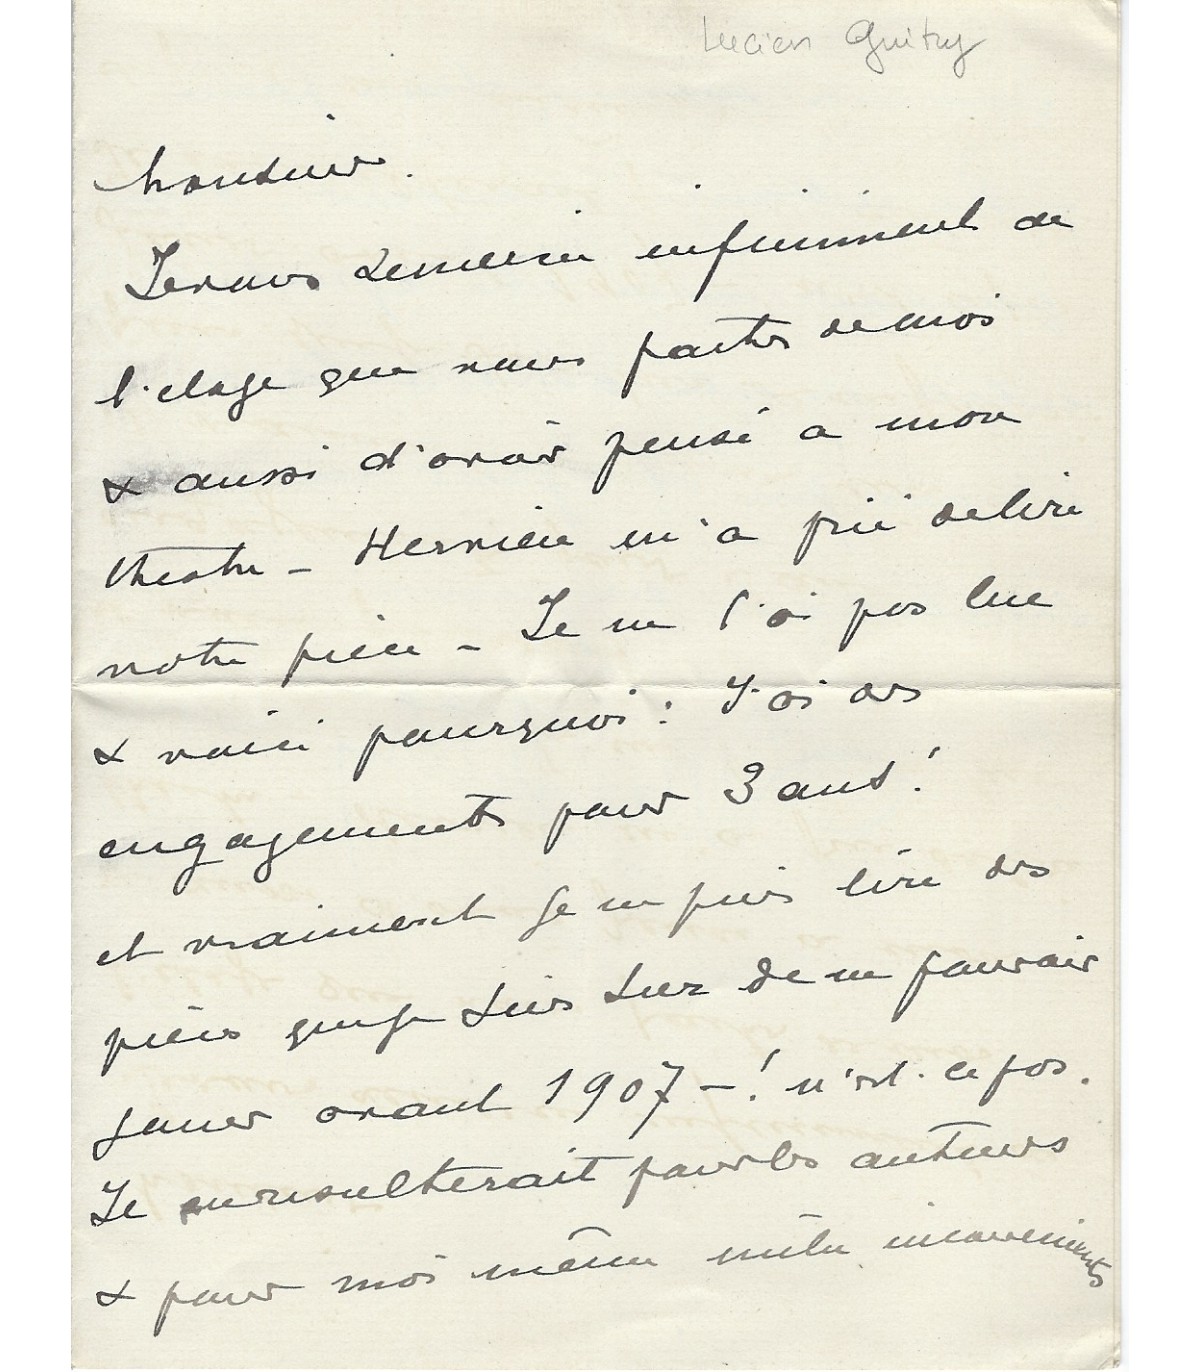 Lucien Guitry
Monsieur.
Je vous remercie infiniment de
l'eloge que vous faites de moi
& aussi d'avoir pensé a mon
theatre – Hervieu m'a prié de lire
votre piece – Je ne l'ai pas lue
& voici pourquoi : J'ai des
engagements pour 3 ans !
et vraiment je ne puis lire des
pièces que je suis sur de ne pouvoir
jouer avant 1907 – ! n'est-ce pas.
Il en resulterait pour les auteurs
& pour moi même mille inconvenients